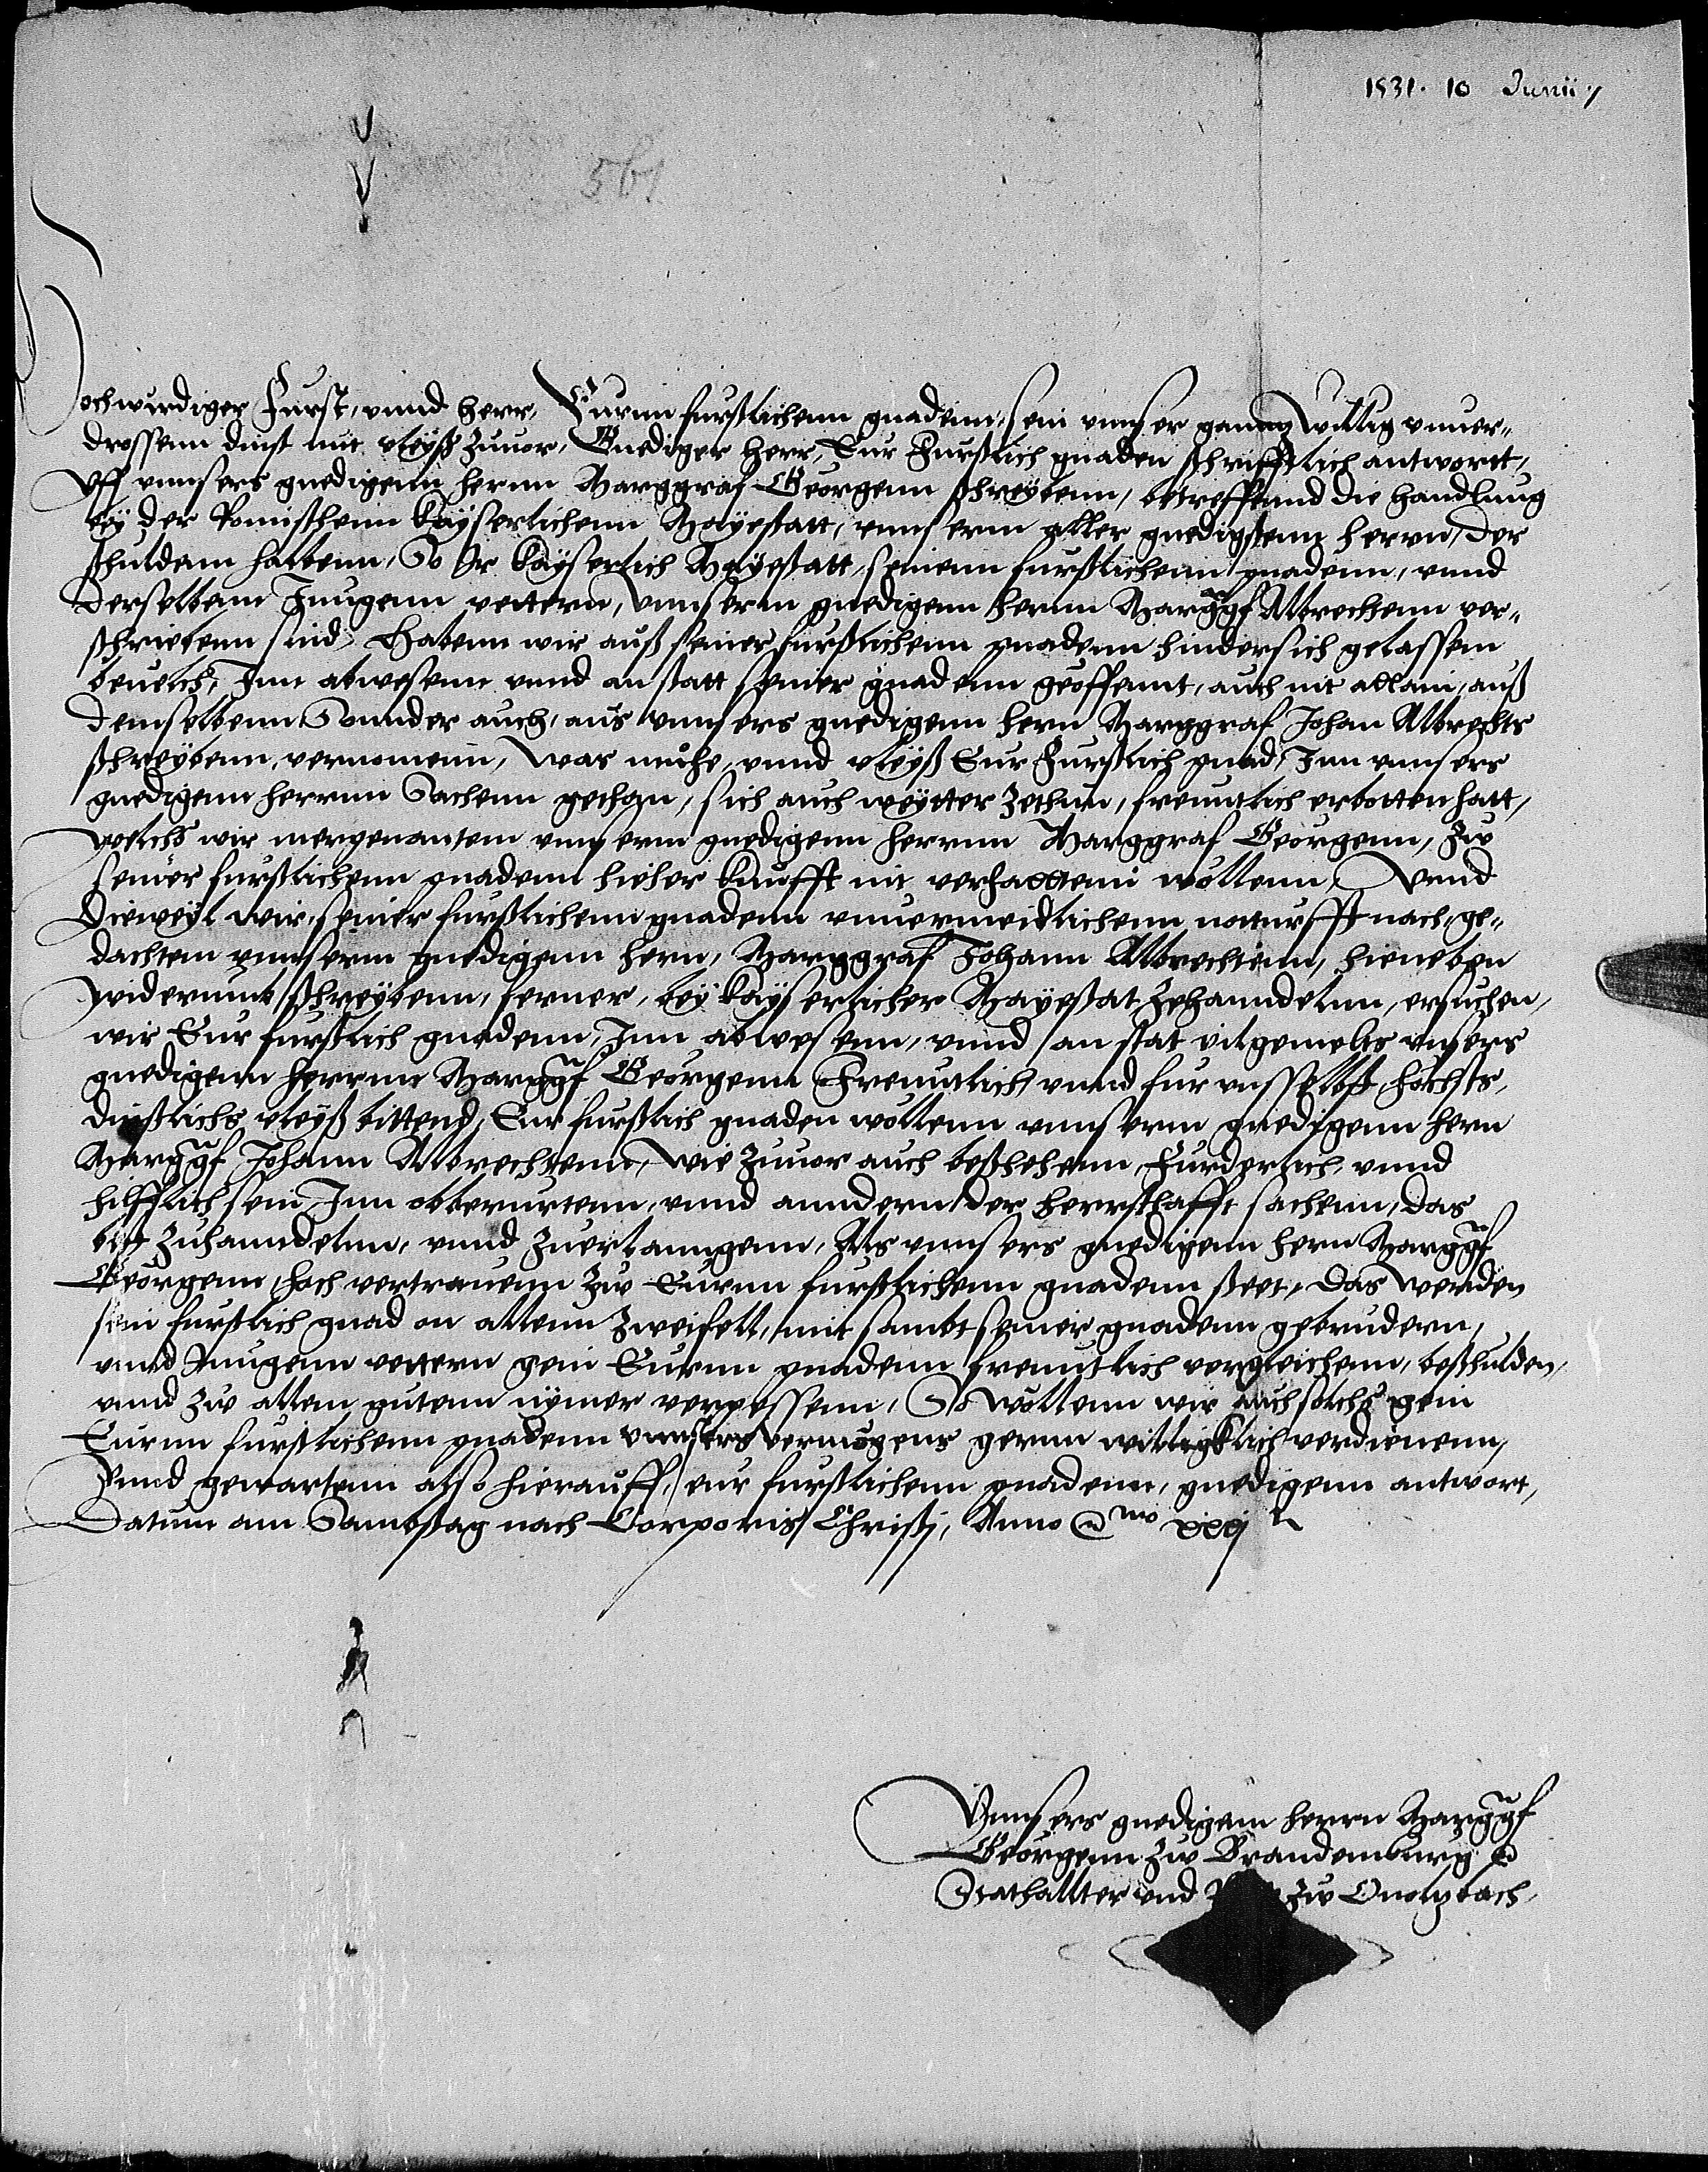 1531. 10 Junii
561
Hochwirdiger Furst, vnnd herr, Eurnn furstlichenn gnadenn, sein vnnser ganntz willig vnuer¬
drossenn dinst mit vleyß zuuor, Gnediger herr, Eur Furstlich gnaden schrifftlich antwortt,
Vff vnnsers gnedigenn hernn Marggraf Georgenn schreybenn, betreffennd die handlung
bey der Romischenn kayserlichenn Mayestatt, vnnserm aller gnedigstenn herrn, der
schuldenn halbenn, So Ir kayserlich Mayestatt, seinenn furstlichenn gnadenn, vnnd
derselbenn Jungenn vettern, vnnserm gnedigenn hernn Marggf Albrechtenn ver¬
schriebenn sind, Habenn wir auß seiner furstlichenn gnadenn hindersich gelassem
beuelch, Inn abwesenn vnnd anstatt seiner gnadenn geoffennt, auch nit allain, auß
demselbenn, Sonnder auch, aus vnnsers gnedigenn hern Marggraf Johan Albrechts
schreybenn, vernomenn, was muhe, vnnd vleyß Eur Furstlich gnad, Inn vnnsers
gnedigenn herrnn Sachenn gethan, sich auch weytter zethun, freuntlich erbotten hatt,
welchs wir mergenantem vnnserm gnedigenn herrnn Marggraf Georgenn, zw
seiner furstlichenn gnadenn hieher kunfft nit verhalltenn wöllenn, Vnnd
dieweyl wir, seiner furstlichenn gnadenn vnuermeidlichenn notturfft nach, ge¬
dachtem vnnserm gnedigenn hern, Marggraf Johann Albrechtenn, hieneben
widerumb schreybenn, ferner, bey kayserlicher Mayestat zehanndelnn, ersuchen,
wir Eur furstlich gnadenn, Inn abwesenn, vnnd an stat vilgemelts vnsers
gnedigenn herrnn Marggf Georgenn Freuntlich, vnnd fur vnsselbst, hochsts,
dinstlichs vleyß bittend, Eur furstlich gnaden wöllenn vnnserm gnedigenn hern
Marggf Johann Albrechtenn, wie zuuor auch beschehenn, Furderlich, vnnd
hilfflich sein, Inn obberurtenn, vnnd anndern der herrschafft sachenn, das
best zuhanndelnn, vnnd zuerlanngenn, Als vnnsers gnedigenn hern Marggf
Georgenn, hoch vertrauenn zw Eurnn furstlichenn gnadenn steet, Das werden
sein furstlich gnad on allenn zweifell, mit sambt seiner gnadenn gebrudern,
vnnd Jungenn vettern gein Eurnn gnadenn freuntlich vergleichenn, beschulden,
vnnd zw allem gutenn nymer vergessenn, So wöllenn wir auch solchs gein
Eurnn furstlichenn gnadenn vnnsers vermögens gernn willigklich verdienenn,
Vnnd gewartenn also hierauff, eur furstlichenn gnadenn, gnedigenn antwort,
Datum am Sambstag nach Corporis Christj, Anno xxxj
Vnnsers gnedigenn herrn Marggf
Georgenn zw Brandemburg
Stathallter vnd zw Onoltzbach